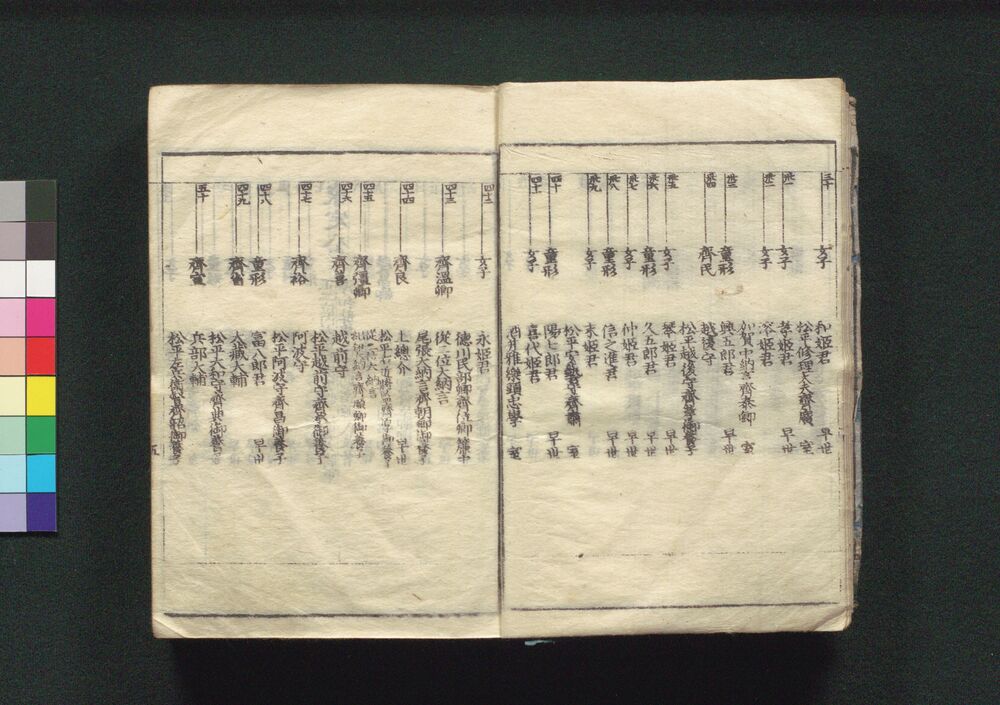 三十
女子
和姫君
早世
松平修理大夫齊廣
室
丗一
女子
孝姫君
早世
丗二
女子
溶姫君
加賀中納言齊泰卿
室
丗三
童形
興五郎君
早世
丗四
齊民
越後守
松平越後守齊孝御養子
丗五
女子
琴姫君
早世
丗六
童形
久五郎君
早世
丗七
女子
仲姫君
早世
丗八
童形
信之進君
早世
丗九
女子
末姫君
松平安藝守齊肅
室
四十
童形
陽七郎君
早世
四十一
女子
喜代姫君
酒井雅樂頭忠學
室
四十二
女子
永姫君
徳川民部卿齊位卿
簾中
四十三
齊温卿
從二位大納言
尾張大納言齊朝卿御養子
四十四
齊良
上總介
早世
四十五
齊彊卿
從二位大納言
紀伊大納言齊順卿御養子
四十六
齊善
越前守
松平越前守齊承御養子
四十七
齊裕
阿波守
松平阿波守齊昌御養子
四十八
童形
富八郎君
早世
四十九
齊省
大藏大輔
松平大和守齊典御養子
五十
齊宣
兵部大輔
松平左兵衛督齊韶御養子
五